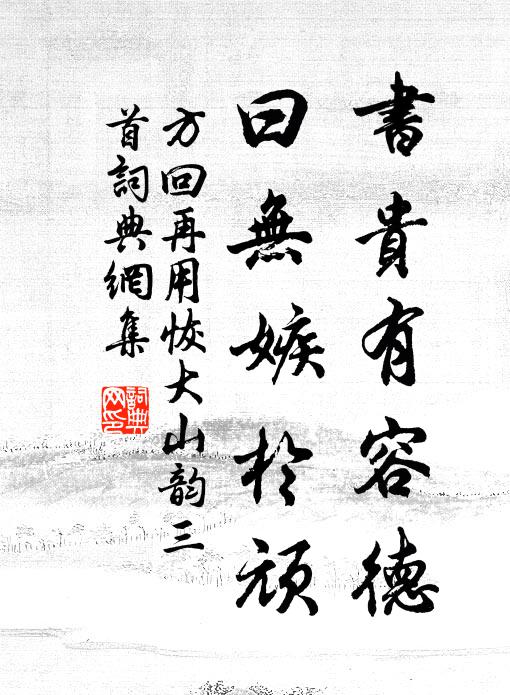 書貴有容德
曰無嫉於頑
方回再用恢大山韵三
首詞典網集
詞典
网印